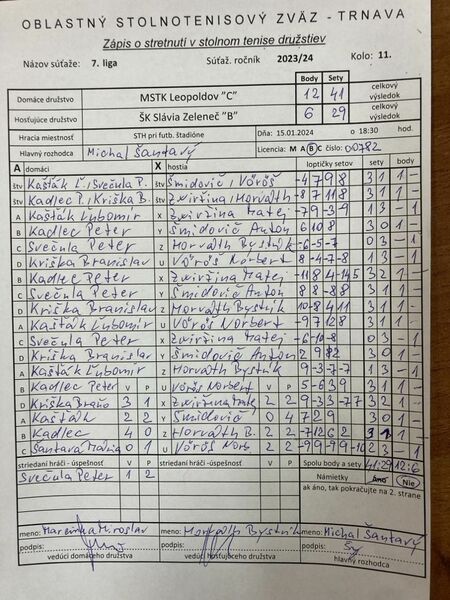 OBLASTNÝ STOLNOTENISOVÝ ZVÄZ - TRNAVA
Zápis o stretnutí v stolnom tenise družstiev
Názov súťaže: 7. liga Súťaž. ročník 2023/24 Kolo: 11.
Body Sety
Domáce družstvo MSTK Leopoldov "C" 12 41 celkový výsledok
Hosťujúce družstvo ŠK Slávia Zeleneč "B" 6 29 celkový výsledok
Hracia miestnosť STH pri futb. štadióne Dňa: 15.01.2024 o 18:30 hod.
Hlavný rozhodca Michal Šantavý Licencia: M A B C číslo: 00782
A domáci X hostia loptičky setov sety body
štv Kašťák Ľ., Svečula P. štv Šmidovič, Vöröš -4 7 9 8 3 1 1 -
štv Kadlec P., Kriška B. štv Zwiržina, Horváth -8 7 11 8 3 1 1 -
A Kašťák Ľubomír X Zwiržina Matej -7 9 -3 -9 1 3 - 1
B Kadlec Peter Y Šmidovič Anton 6 10 8 3 0 1 -
C Svečula Peter Z Horváth Bystrík -6 -5 -7 0 3 - 1
D Kriška Branislav U Vöröš Norbert 8 -4 -7 -8 1 3 - 1
B Kadlec Peter X Zwiržina Matej -11 8 4 -14 5 3 2 1 -
C Svečula Peter Y Šmidovič Anton 8 8 -8 8 3 1 1 -
D Kriška Branislav Z Horváth Bystrík 10 -8 4 11 3 1 1 -
A Kašťák Ľubomír U Vöröš Norbert -9 7 12 8 3 1 1 -
C Svečula Peter X Zwiržina Matej -6 -10 -8 0 3 - 1
D Kriška Branislav Y Šmidovič Anton 2 9 8 2 3 1 1 -
A Kašťák Ľubomír Z Horváth Bystrík 9 -3 -7 -7 1 3 - 1
B Kadlec Peter V P U Vöröš Norbert V P 5 -6 3 9 3 1 1 -
D Kriška Braňo 3 1 X Zwiržina Matej 2 2 9 -3 3 -7 7 3 2 1 -
A Kašťák 2 2 Y Šmidovič 0 4 7 2 9 3 0 1 -
B Kadlec 4 0 Z Horváth B. 2 2 -7 12 6 2 3 1 1 -
C Šantavá Mária 0 1 U Vöröš Nor. 2 2 -9 9 -9 2 3 - 1
striedaní hráči - úspešnosť V P striedaní hráči - úspešnosť V P Spolu body a sety 41:29 12:6
Svečula Peter 1 2 Námietky Áno Nie
ak áno, tak pokračujte na 2. strane
meno: Miroslav meno: Horváth Bystrík meno: Michal Šantavý
podpis: podpis: podpis:
vedúci domáceho družstva vedúci hosťujúceho družstva hlavný rozhodca